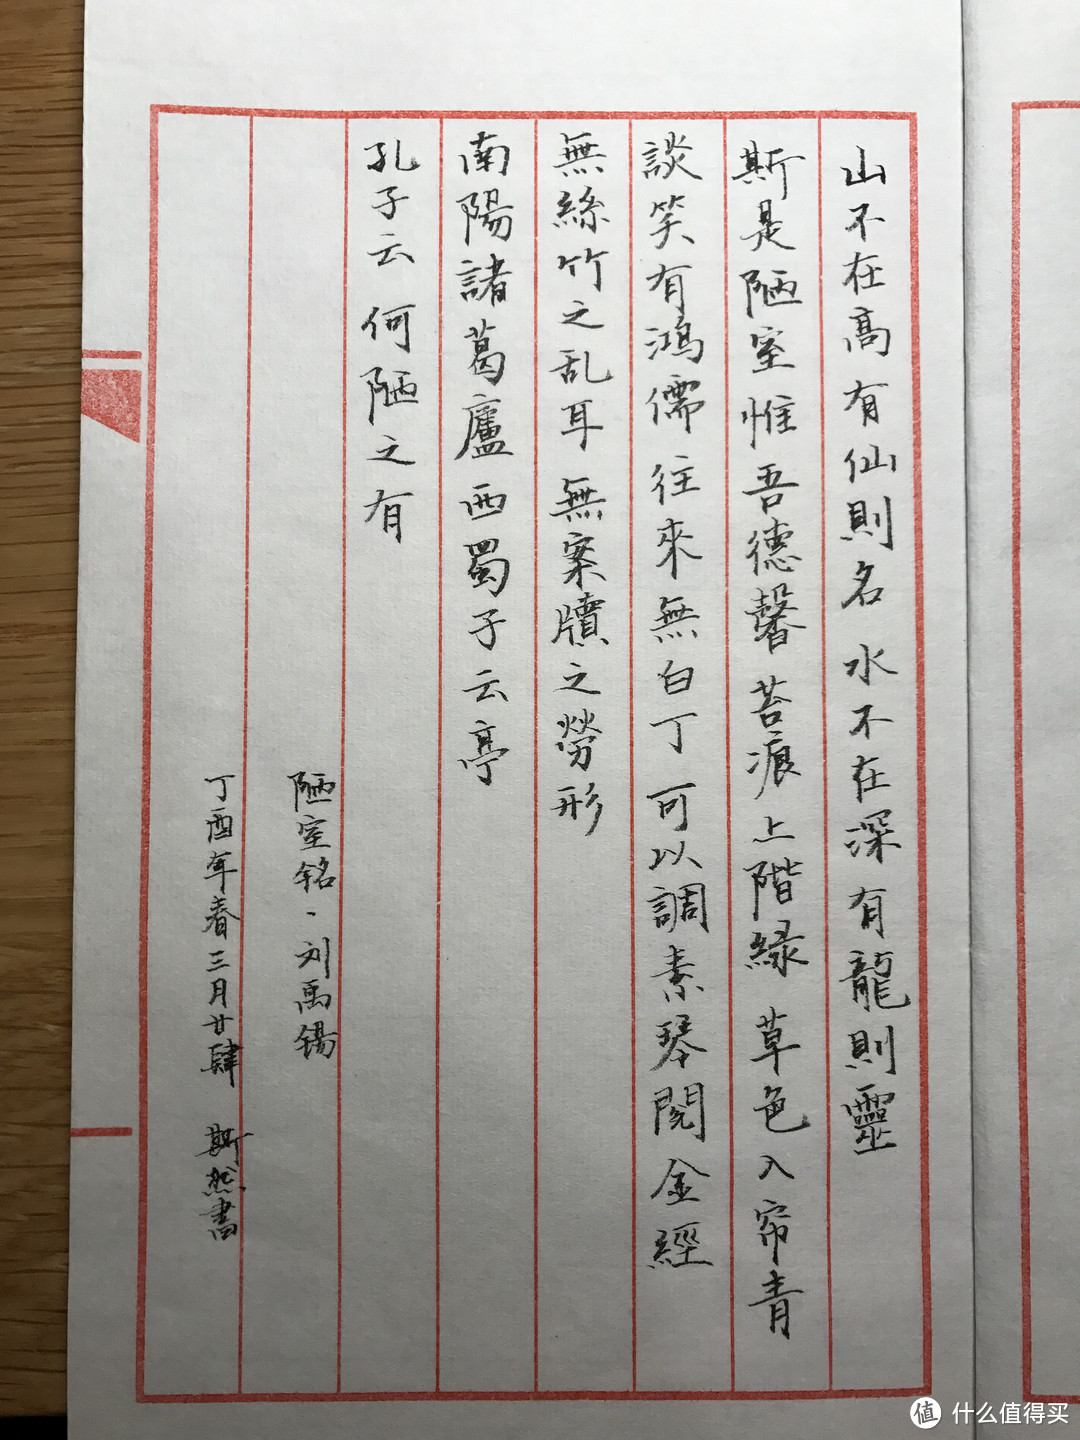 山不在高有仙則名水不在深有龍則靈
斯是陋室惟吾德馨苔痕上階緑草色入帘青
談笑有鴻儒往來無白丁可以調素琴閱金經
無絲竹之乱耳無案牘之勞形
南陽諸葛廬西蜀子云亭
孔子云何陋之有
陋室铭·刘禹锡
丁酉年春三月廿肆 斯然書
值 什么值得买